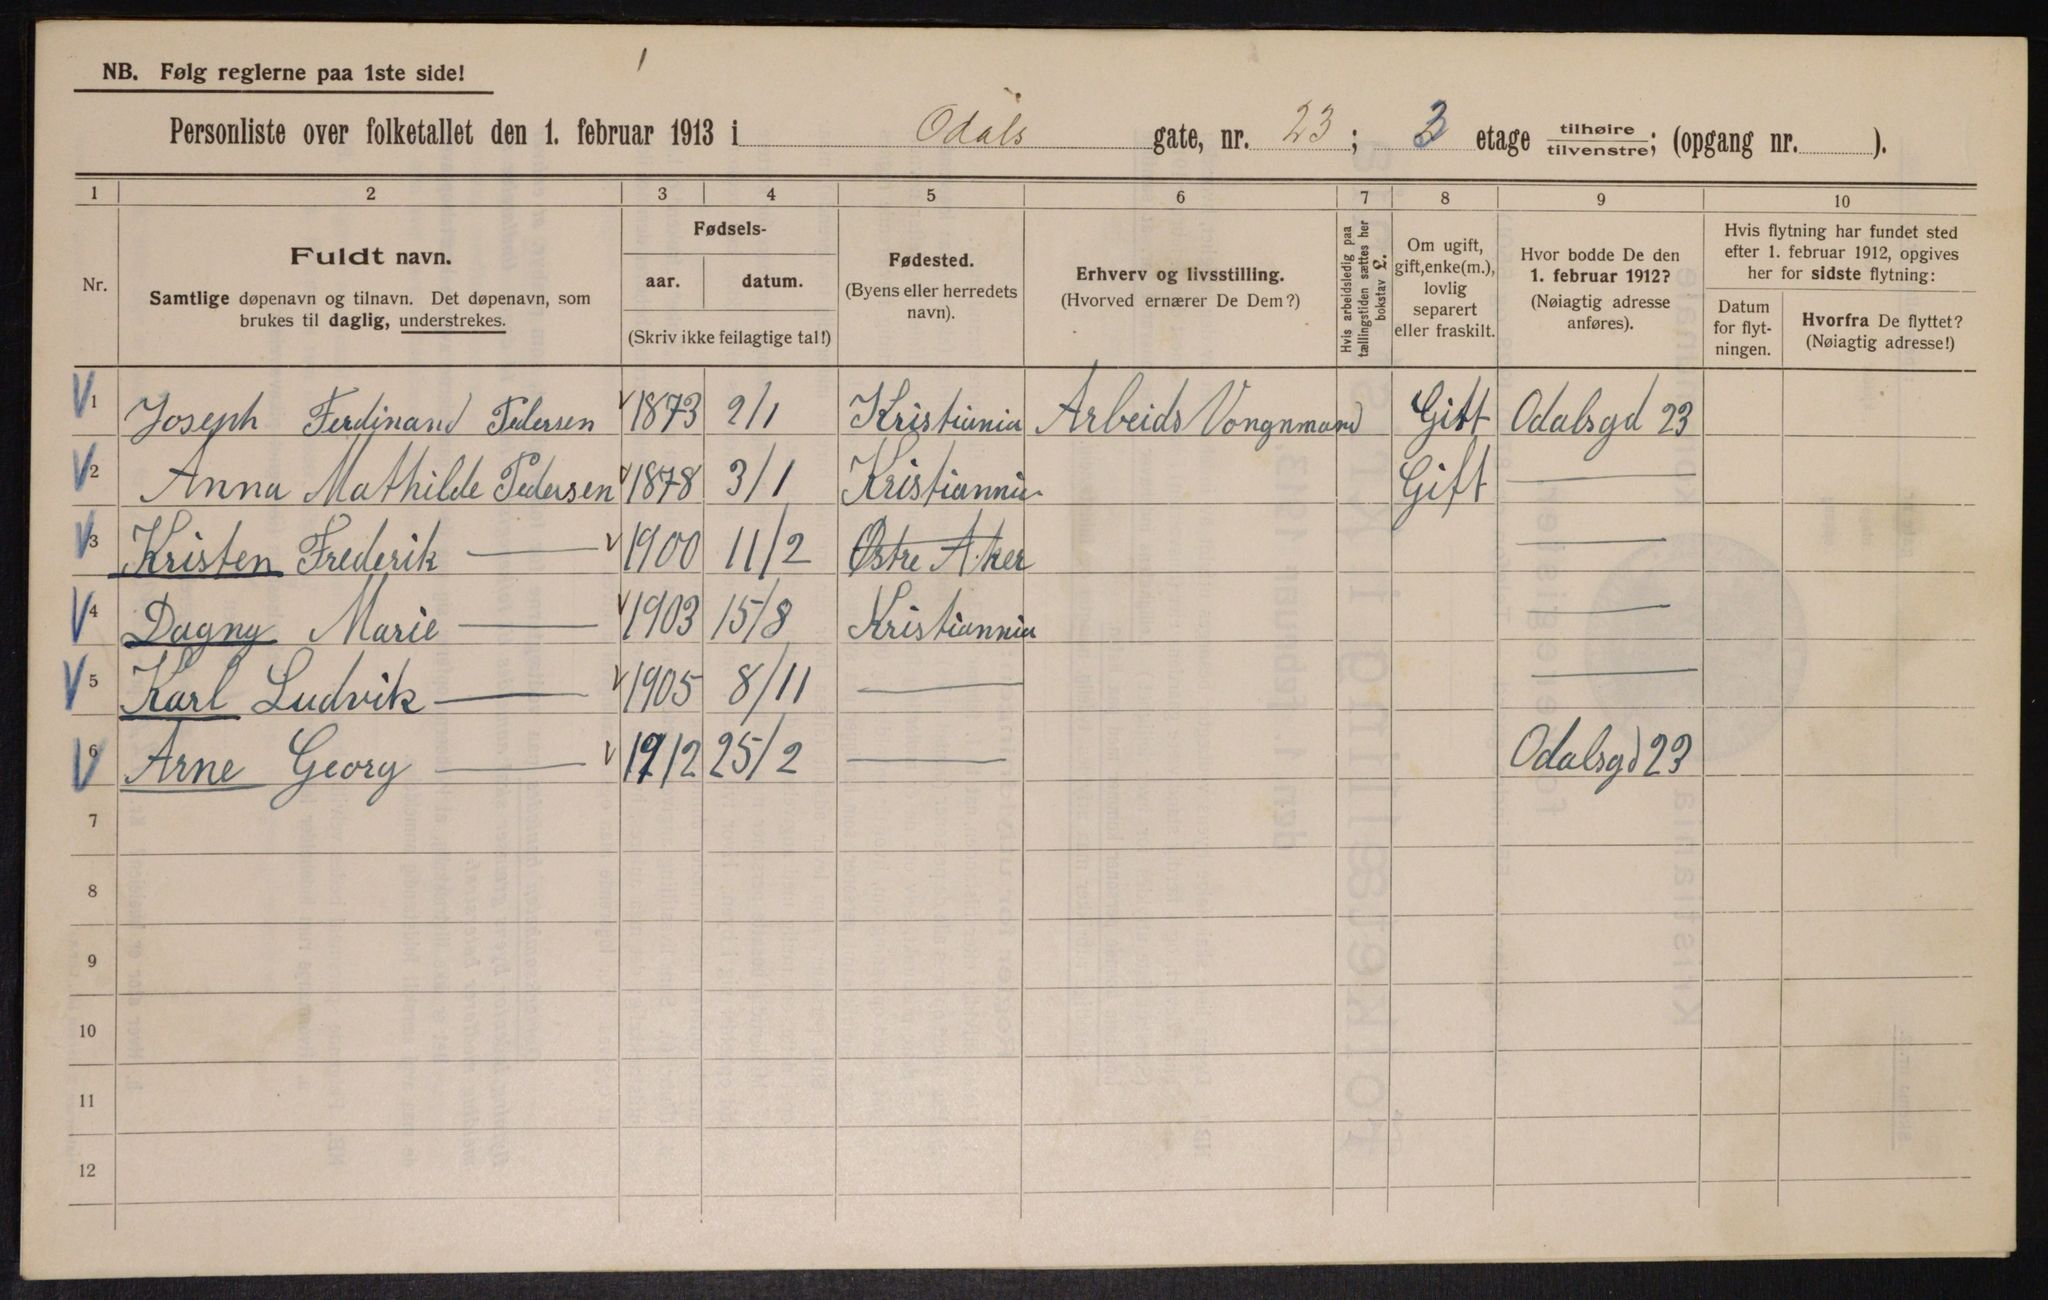 NB. Følg reglerne paa 1ste side!
1
Personliste over folketallet den 1. februar 1913 i Odals gate, nr. 23; etage tilhøire tilvenstre; (opgang nr. ).
1 2 3 4 5 6 7 8 9 10
Nr.
Fuldt navn.
Samtlige døpenavn og tilnavn. Det døpenavn, som
brukes til daglig, understrekes.
Fødsels-
aar. datum.
(Skriv ikke feilagtige tal!)
Fødested.
(Byens eller herredets
navn).
Erhverv og livsstilling.
(Hvorved ernærer De Dem?)
Hvis arbeidsledig paa
tællingstiden sættes her
bokstav £.
Om ugift,
gift, enke(m.),
lovlig
separert
eller fraskilt.
Hvor bodde De den
1. februar 1912?
(Nøiagtig adresse
anføres).
Hvis flytning har fundet sted
efter 1. februar 1912, opgives
her for sidste flytning:
Datum
for flyt-
ningen.
Hvorfra De flyttet?
(Nøiagtig adresse!)
V 1 Joseph Ferdinand Pedersen V 1873 2/1 Kristiania Arbeids Vongnmand Gift Odalsgd 23
V 2 Anna Mathilde Pedersen V 1878 3/1 Kristiannia Gift —
V 3 Kristen Frederik — V 1900 11/2 Østre Aker —
V 4 Dagny Marie — V 1903 15/8 Kristiannia —
V 5 Karl Ludvik — V 1905 8/11 — —
V 6 Arne Georg — V 1912 25/2 — Odalsgd 23
7
8
9
10
11
12